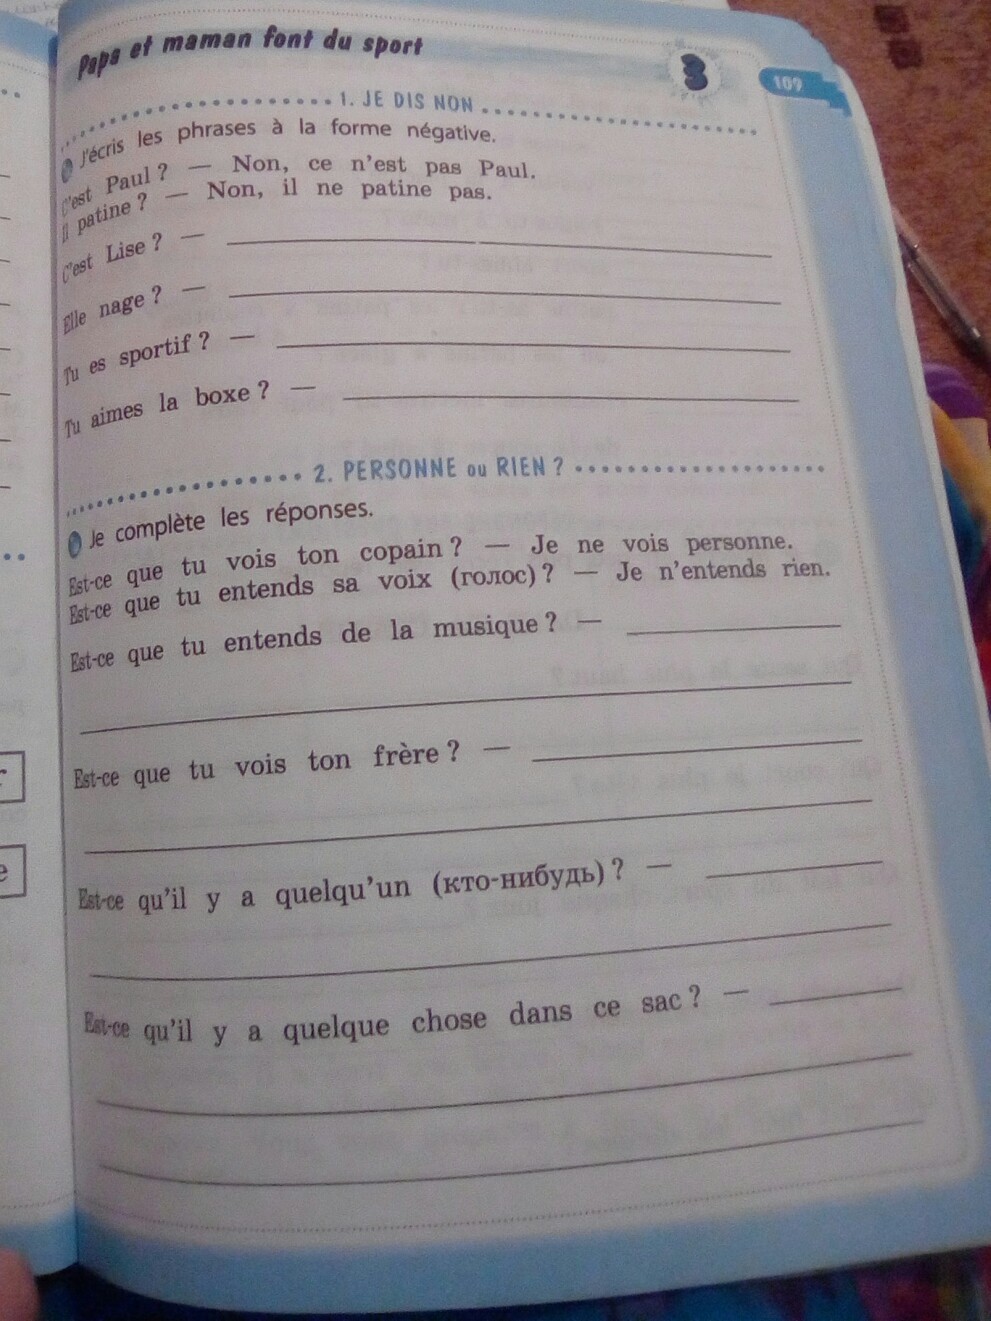 Papa et maman font du sport
3
109
1. JE DIS NON
J'écris les phrases à la forme négative.
C'est Paul ? — Non, ce n'est pas Paul.
Il patine ? — Non, il ne patine pas.
C'est Lise ? —
Elle nage ? —
Tu es sportif ? —
Tu aimes la boxe ? —
2. PERSONNE ou RIEN ?
Je complète les réponses.
Est-ce que tu vois ton copain ? — Je ne vois personne.
Est-ce que tu entends sa voix (голос) ? — Je n'entends rien.
Est-ce que tu entends de la musique ? —
Est-ce que tu vois ton frère ? —
Est-ce qu'il y a quelqu'un (кто-нибудь) ? —
Est-ce qu'il y a quelque chose dans ce sac ? —